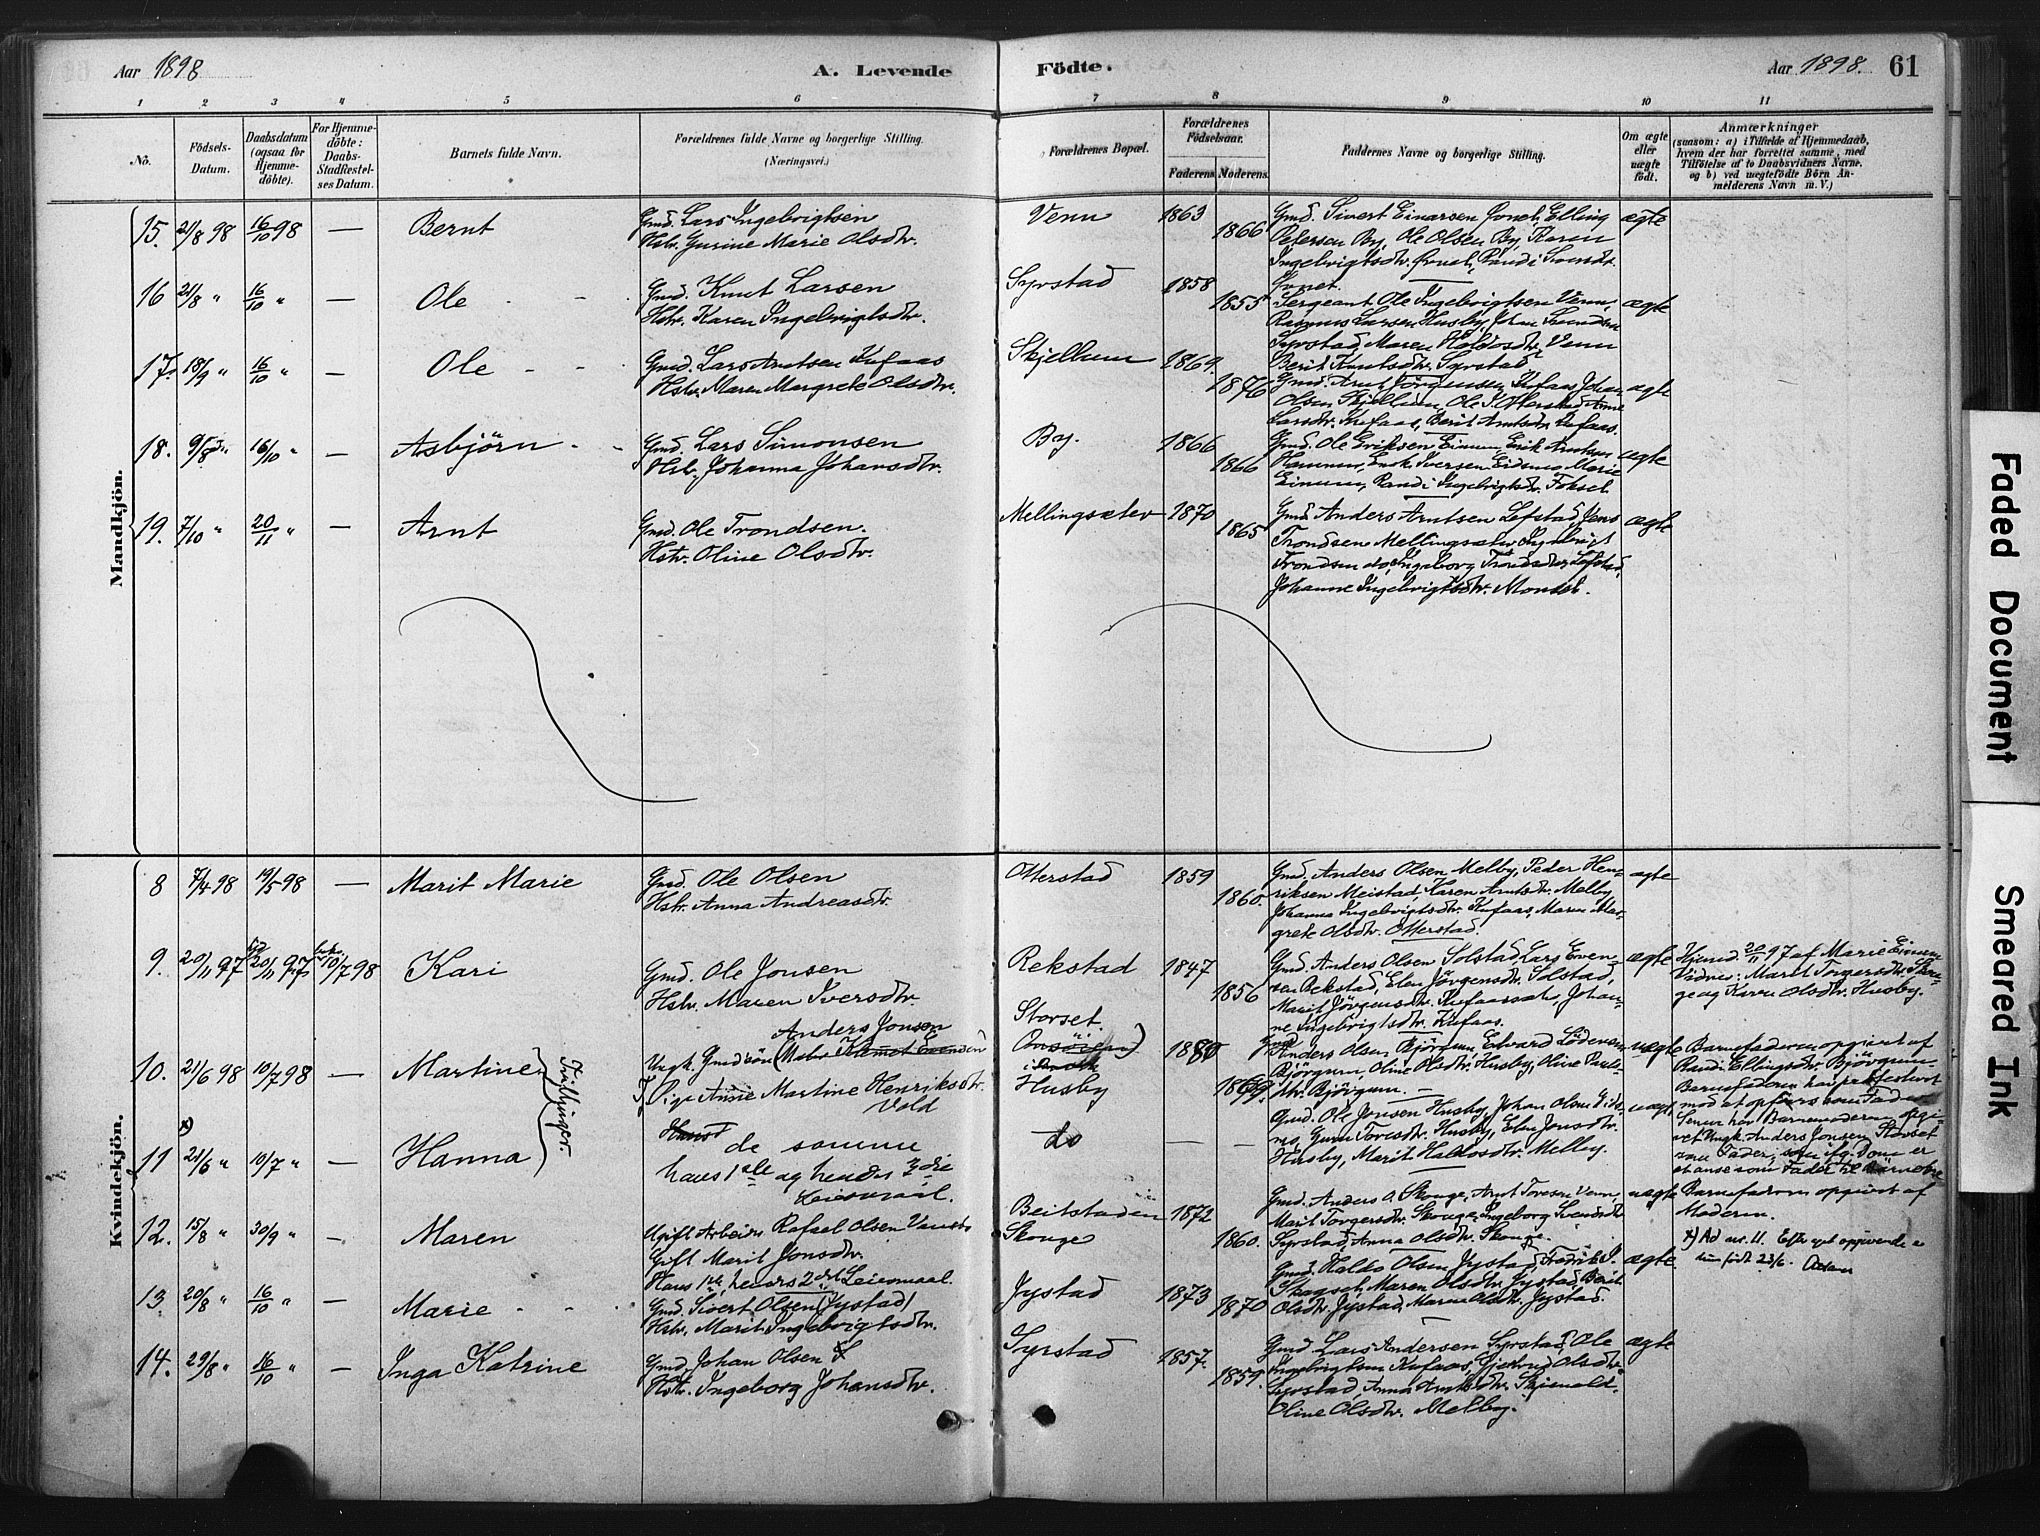 Aar 1898
A. Levende
Födte.
Aar 1898. 61
1 2 3 4 5 6 7 8 9 10 11
No.
Födsels-
Datum.
Daabsdatum
(ogsaa for
Hjemme-
döbte).
For Hjemme-
döbte:
Daabs-
Stadfæstel-
ses Datum.
Barnets fulde Navn.
Forældrenes fulde Navne og borgerlige Stilling.
(Næringsvei.)
Forældrenes Bopæl.
Forældrenes
Födselsaar.
Faderens. Moderens.
Faddernes Navne og borgerlige Stilling.
Om ægte
eller
uægte
födt.
Anmærkninger
(saasom: a) i Tilfælde af Hjemmedaab,
hvem der har forrettet samme, med
Tilföielse af to Daabsvidners Navne.
og b) ved uægtefödte Börn An-
melderens Navn m. V.)
Mandkjön.
15. 21/8 98 16/10 98 — Bernt
Gmd. Lars Ingebrigtsen
Hstr. Gurine Marie Olsdtr.
Venn 1863 1866
Gmd. Sivert Einarsen Gonet, Elling
Petersen By, Ole Olsen By, Karen
ægte
16 21/8 " 16/10 " — Ole
Gmd. Knut Larsen
Hstr. Karen Ingebrigtsdtr.
Syrstad 1858 1855
Sergeant Ole Ingebrigtsen Venn,
Rasmus Larsen Husby, Johan Svendsen
Syrstad, Maren Haldosdtr. Venn
Berit Knutsdtr. Syrstad
ægte
17. 18/9 " 16/10 " — Ole
Gmd. Lars Arntsen Kufaas
Hstr. Maren Margrete Olsdtr.
Skjellum 1869. 1876
Gmd. Arnt Jörgensen Kufaas, Johan
Olsen Skjellum, Ole J. Otterstad, Anne
Larsdtr. Kufaas, Berit Arntsdtr. Kufaas.
ægte
18. 9/8 " 16/10 " — Asbjörn
Gmd. Lars Simonsen
Hstr. Johanna Johansdtr.
By. 1866 1866
Gmd. Ole Eriksen Einum, Erik Arntsen
Hammer, Enok Iversen Eidsmo, Marie
Einum, Randi Ingebrigtsdtr. Foksel
ægte
19. 7/10 " 20/11 " — Arnt
Gmd. Ole Trondsen.
Hstr. Oline Olsdtr.
Mellingsæter 1870 1865
Gmd. Anders Arntsen Lefstad, Jens
Trondsen Mellingsæter, Ingebrigt
Trondsen do, Ingeborg Trondsdtr. Lefstad,
Johanne Ingebrigtsdtr. Monset.
ægte
Kvindekjön.
8 7/4 98 19/5 98 — Marit Marie
Gmd. Ole Olsen
Hstr. Anna Andreasdtr.
Otterstad 1859 1860.
Gmd. Anders Olsen Melby, Peder Hen-
riksen Meistad, Karen Arntsdtr. Melby,
Johanna Ingebrigtsdtr. Kufaas, Maren Mar-
grete Olsdtr. Otterstad.
ægte
9. 20/11 97 20/11 97 10/7 98 Kari
Gmd. Ole Jonsen
Hstr. Maren Iversdtr.
Rekstad 1847 1856
Gmd. Anders Olsen Solstad, Lars Even-
sen Rekstad, Elen Jörgensdtr. Solstad,
Marit Jörgensdtr. Kufaassæter, Johan-
ne Ingebrigtsdtr. Kufaas.
ægte
Hjemd. 20/11 97 af Marie Einum
Vidner: Marit Torgersdtr. Skou-
ge og Karen Olsdtr. Husby.
10. 21/6 98 10/7 98 — Martine
Tvillinger.
Anders Jonsen
Ungk. Gmdsön
Pige Anne Martine Henriksdtr.
Vold
Storset.
Husby
Anders Olsen Björgum, Edvard
Björgum, Oline Olsdtr. Husby, Oline Pauls-
dtr. Björgum.
uægte
Barnefaderen opgivet af
Randi Ellingsdtr. Björgum
Barnefaderen har protesteret
mod at opföres som Fader
Senere har Barnemoderen opgi-
vet Ungk. Anders Jonsen Storset
som Fader, som flg. Dom er
at anse som Fader til Börnene
11 21/6 " 10/7 " — Hanna
de samme
hans 1ste og hendes 3die
Leiermaal.
do — —
Gmd. Ole Jonsen Husby, Johan Olsen Eids-
mo, Guru Toresdtr. Husby, Elen Jonsdtr.
Husby, Marit Haldosdtr. Melby.
uægte
12. 15/8 " 30/9 " — Maren
Ugift Arbeider Rafael Olsen
Gift Marit Jonsdtr.
Hans 1ste, hendes 2det Leiermaal.
Beitstaden
Skouge
1872 1860.
Gmd. Anders O. Skouge, Arnt Toresen Venn,
Marit Torgersdtr. Skouge, Ingeborg Svendsdtr.
Syrstad, Anna Olsdtr. Skouge.
uægte
Barnefaderen opgivet af
Moderen.
x) Ad nr. 11. Efter eget opgivende er
hun födt 23/6.
13. 20/8 " 16/10 " — Marie
Gmd. Sivert Olsen (Jystad)
Hstr. Marit Ingebrigtsdtr.
Jystad 1873 1870
Gmd. Haldo Olsen Jystad, Fredrik J.
Skagseth, Maren Olsdtr. Jystad, Berit
Olsdtr. Jystad, Maren Olsdtr. Jystad.
ægte.
14. 29/8 " 16/10 " — Inga Katrine
Gmd. Johan Olsen
Hstr. Ingeborg Johansdtr.
Syrstad 1857. 1859.
Gmd. Lars Andersen Syrstad, Ole
Ingebrigtsen Kufaas, Gjertrud Olsdtr.
Syrstad, Anna Arntsdtr. Skjenald.
Oline Olsdtr. Melby.
ægte
Faded Document
Smeared Ink